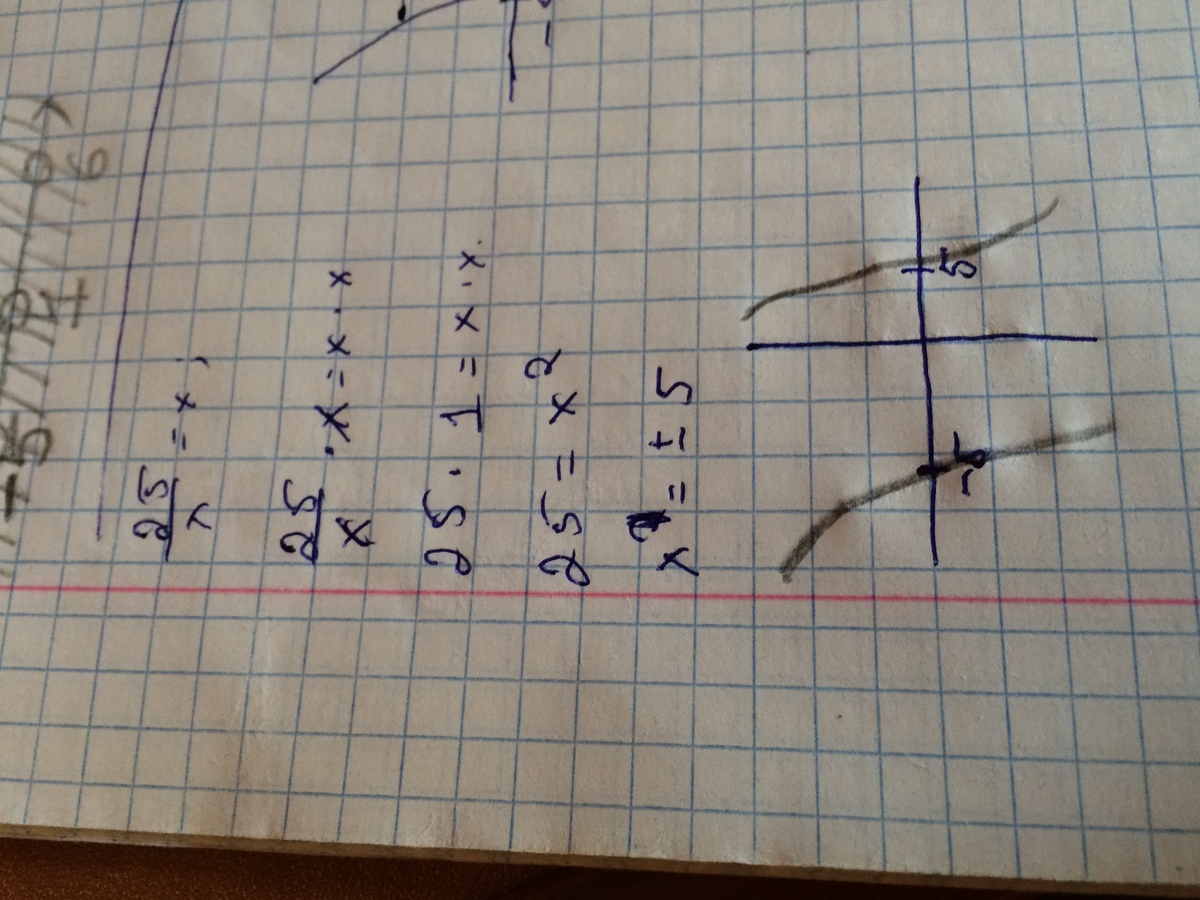 25/x = x;
25/x · x = x · x
25 · 1 = x · x.
25 = x²
x = ± 5
-5 5